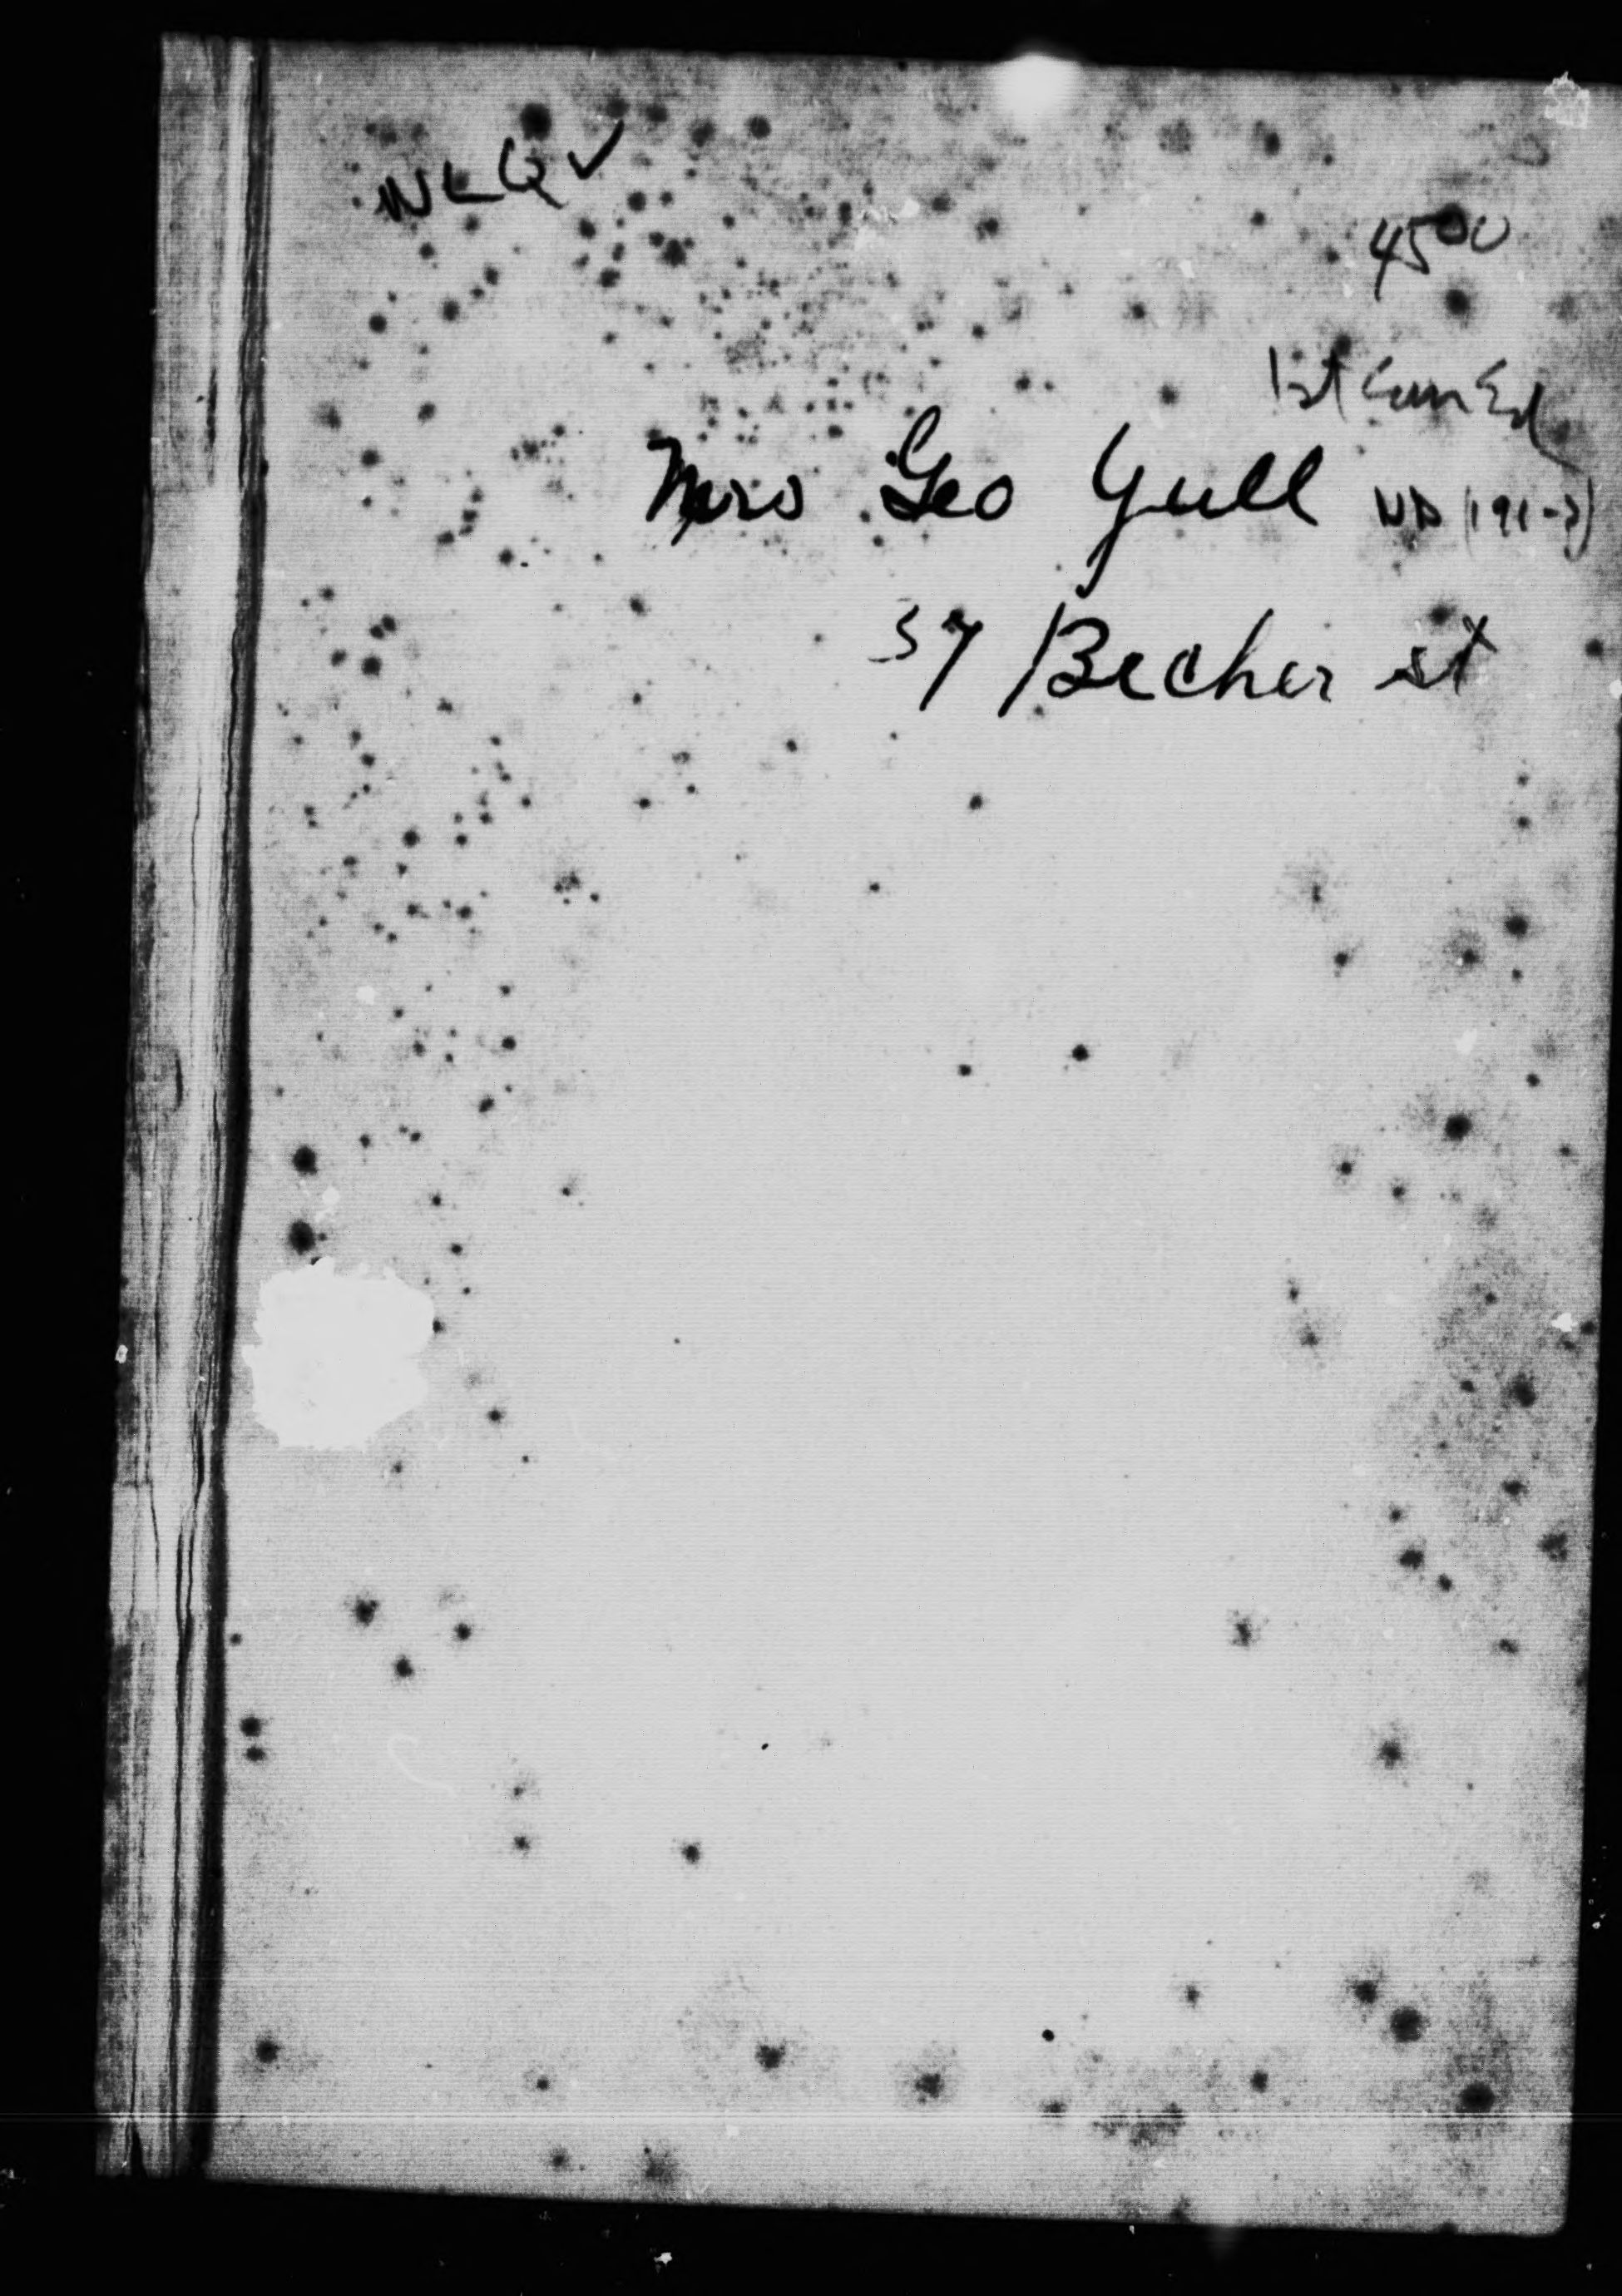 WLQ ✓
4500
1st Can Ed
Mrs Geo Yull
ND (191-?)
37 Becher st